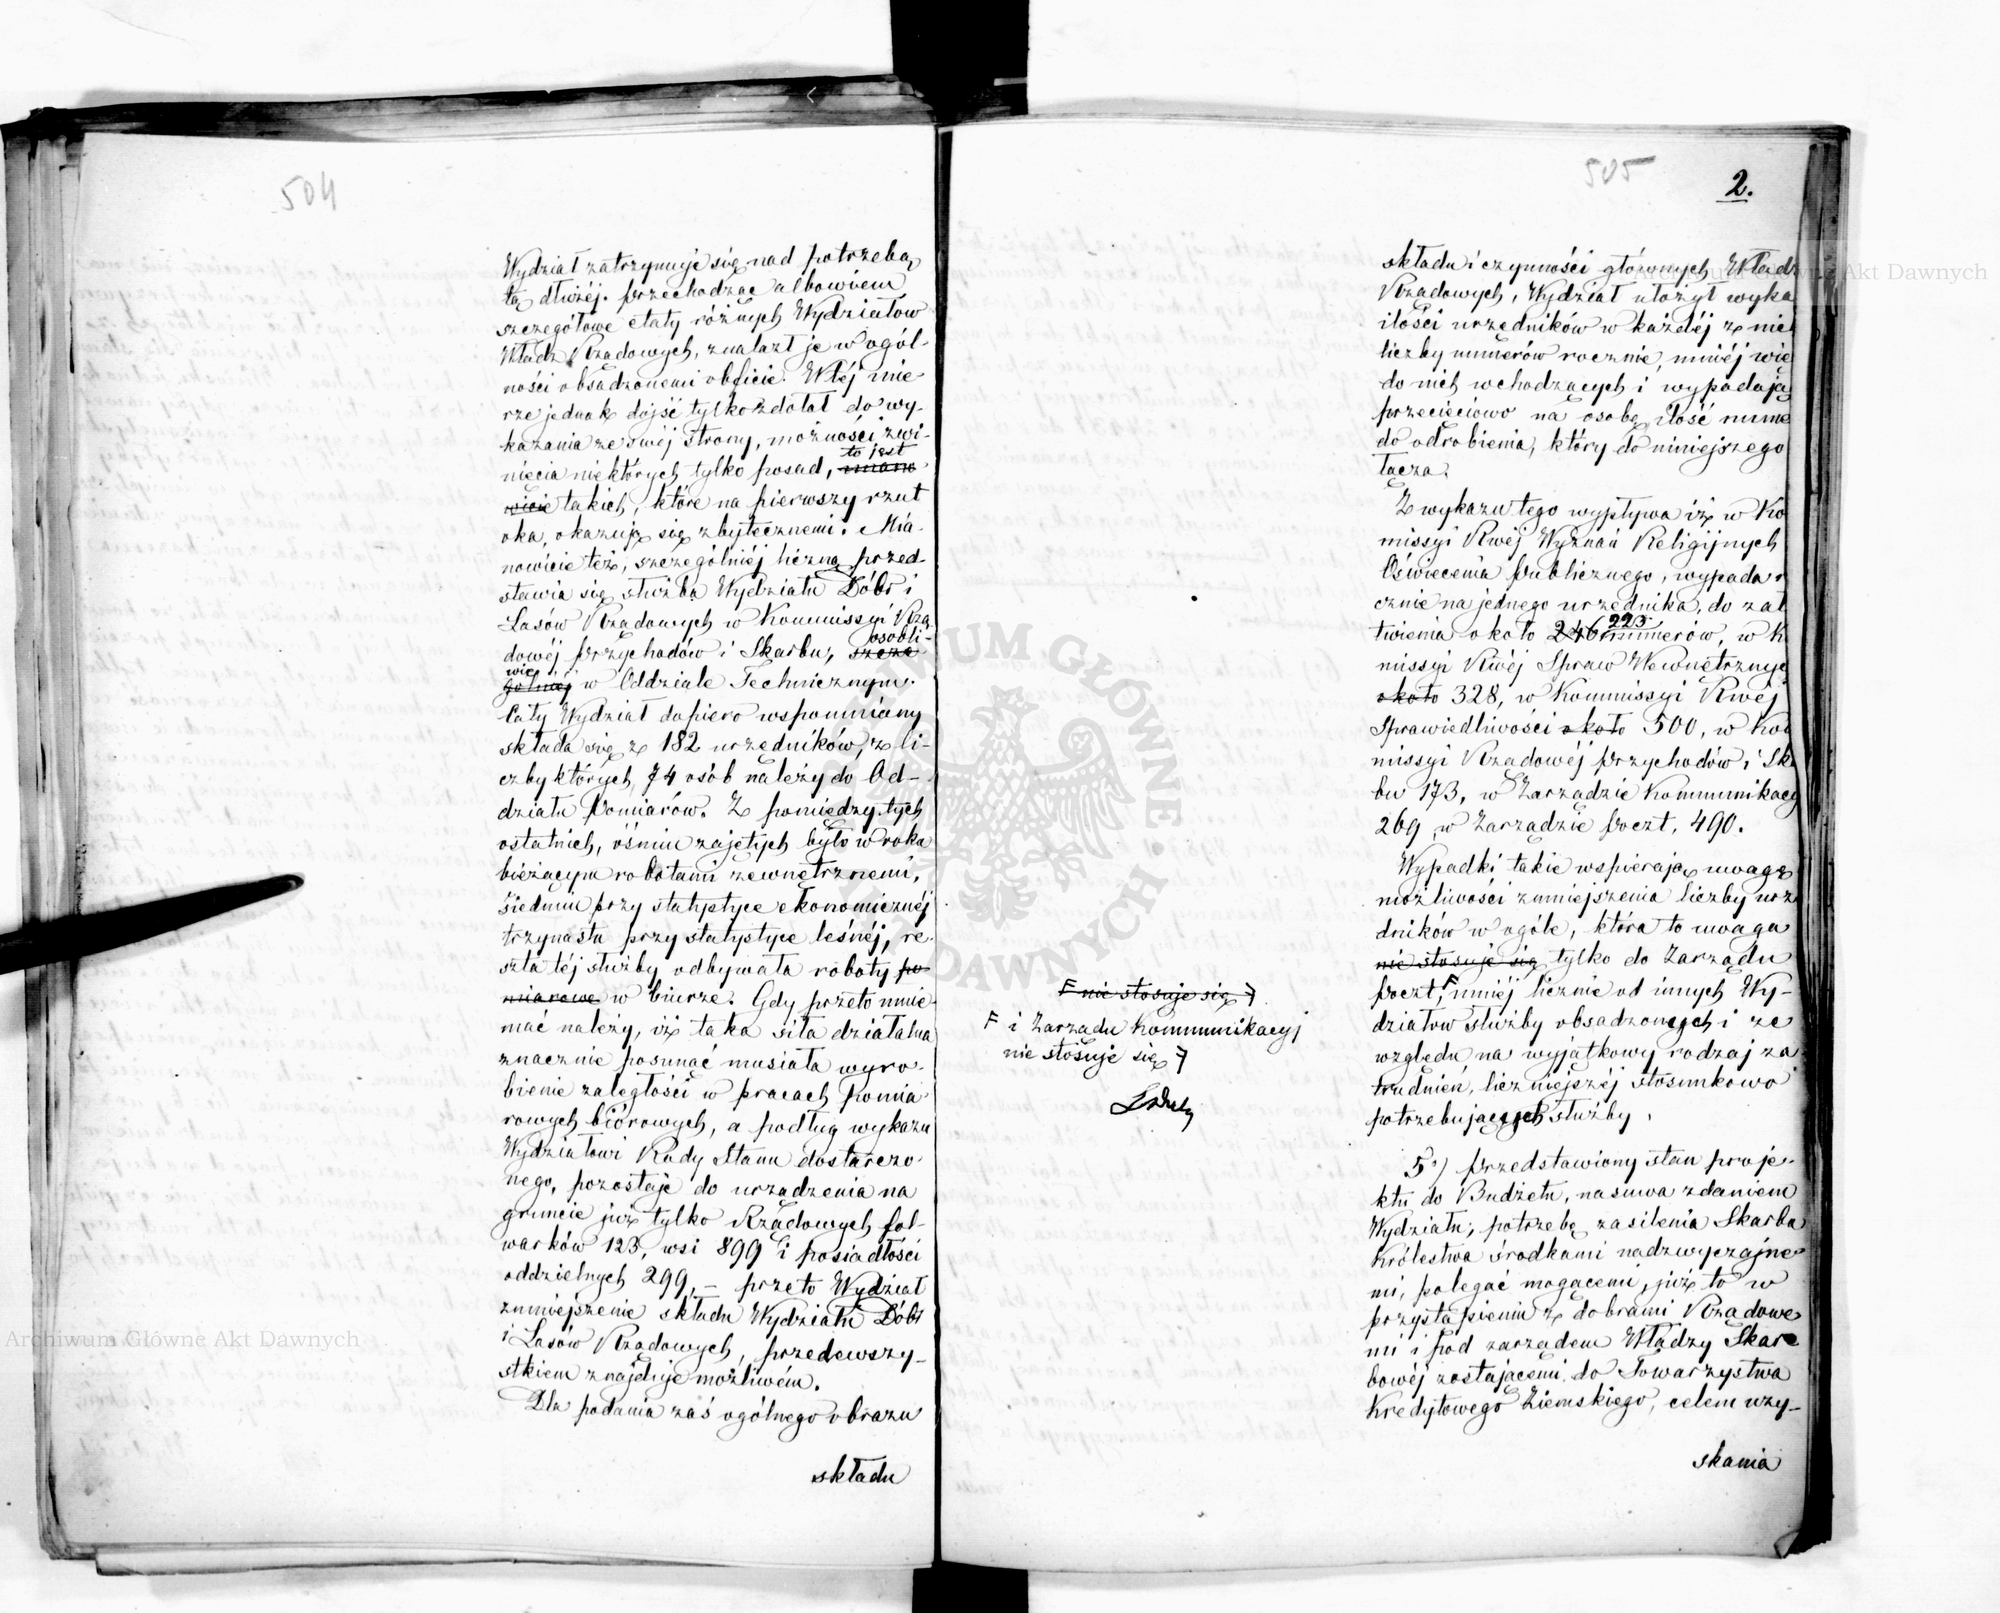 504
Wydział zatrzymuje się nad potrzebą
tą dłużéj. Przechodząc albowiem
szczegółowe etaty różnych Wydziałów
Władz Rządowych, znalazł je w ogól-
ności obsadzonemi obficie. W téj mie-
rze jednak dojść tylko zdołał do wy-
kazania ze swéj strony, możności zwi-
to jest
nięcia niektórych tylko posad, miano
wicie takich, które na pierwszy rzut
oka, okazują się zbytecznemi. Mia-
nowicie też, szczególniéj liczną przed-
stawia się służba Wydziału Dóbr i
Lasów Rządowych w Kommissyi Rzą
osobli-
dowéj Przychodów i Skarbu, szcze
wiej
gólniéj w Oddziale Technicznym.
Cały Wydział dopiero wspomniany
składa się z 182 urzędników, z li-
czby których, 74 osób należy do Od-
działu Pomiarów. Z pomiędzy tych
ostatnich, ośmiu zajętych było w roku
bieżącym robotami zewnętrznemi,
siedmiu przy statystyce ekonomicznéj
trzynastu przy statystyce leśnéj, re-
szta téj służby odbywała roboty po
miarowe w biurze. Gdy przeto mnie-
mać należy, iż taka siła działalna
znacznie posunąć musiała wyro-
bienie zaległości w pracach pomia-
rowych biórowych, a podług wykazu
Wydziałowi Rady Stanu dostarczo-
nego, pozostaje do urządzenia na
gruncie już tylko Rządowych fol-
warków 123, wsi 899 i posiadłości
oddzielnych 299, – przeto Wydział
zmniejszenie składu Wydziału Dóbr
i Lasów Rządowych, przedewszy-
stkiem znajduje możliwém.
Dla podania zaś ogólnego obrazu
składu
505
2.
składu i czynności głównych Władz
Rządowych, Wydział ułożył wyka
ilości urzędników w każdéj z nich
liczby numerów rocznie, mniéj wię
do nich wchodzących i wypadają
przecięciowo na osobę ilość nume
do odrobienia, który do niniejszego
łącza.
Z wykazu tego wypływa iż w Ko
missyi Rwéj Wyznań Religijnych
Oświecenia Publicznego, wypada r
cznie na jednego urzędnika, do zał
223
twienia około 246 numerów, w K
missyi Rwéj Spraw Wewnętrznyc
około 328, w Kommissyi Rwéj
Sprawiedliwości około 500, w Ko
missyi Rządowéj Przychodów i Sk
bu 173, w Zarządzie Kommunikacy
269, w Zarządzie Poczt, 490.
Wypadki takie wspierają uwagę
możliwości zmniejszenia liczby urz
dników w ogóle, która to uwaga
nie stosuje się tylko do Zarządu
Poczt, F mniéj licznie od innych Wy-
działów służby obsadzonych i ze
względu na wyjątkowy rodzaj za-
trudnień, liczniejszéj stosunkowo
potrzebujących służby.
F nie stosuje się
F i Zarządu Kommunikacyj
nie stosuje się
5.) Przedstawiony stan proje-
ktu do Budżetu, nasuwa zdaniem
Wydziału, potrzebę zasilenia Skarbu
Królestwa środkami nadzwyczajne-
mi, polegać mogącemi, już to w
przystąpieniu z dobrami Rządowe-
mi i pod zarządem Władzy Skar-
bowéj zostającemi do Towarzystwa
Kredytowego Ziemskiego, celem uzy-
skania
Archiwum Główne Akt Dawnych
Archiwum Główne Akt Dawnych
ARCHIWUM GŁÓWNE AKT DAWNYCH